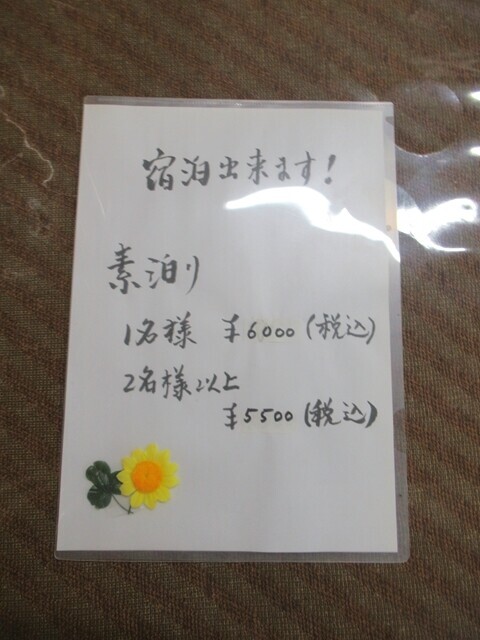 宿泊出来ます!
素泊り
1名様 ¥6000(税込)
2名様以上
¥5500(税込)